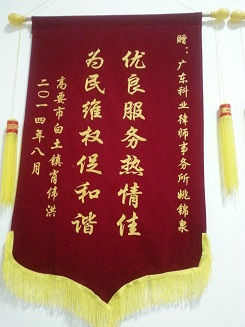 赠：广东科业律师事务所姚锦泉
优良服务热情佳
为民维权促和谐
高要市白土镇肖伟洪
二〇一四年八月